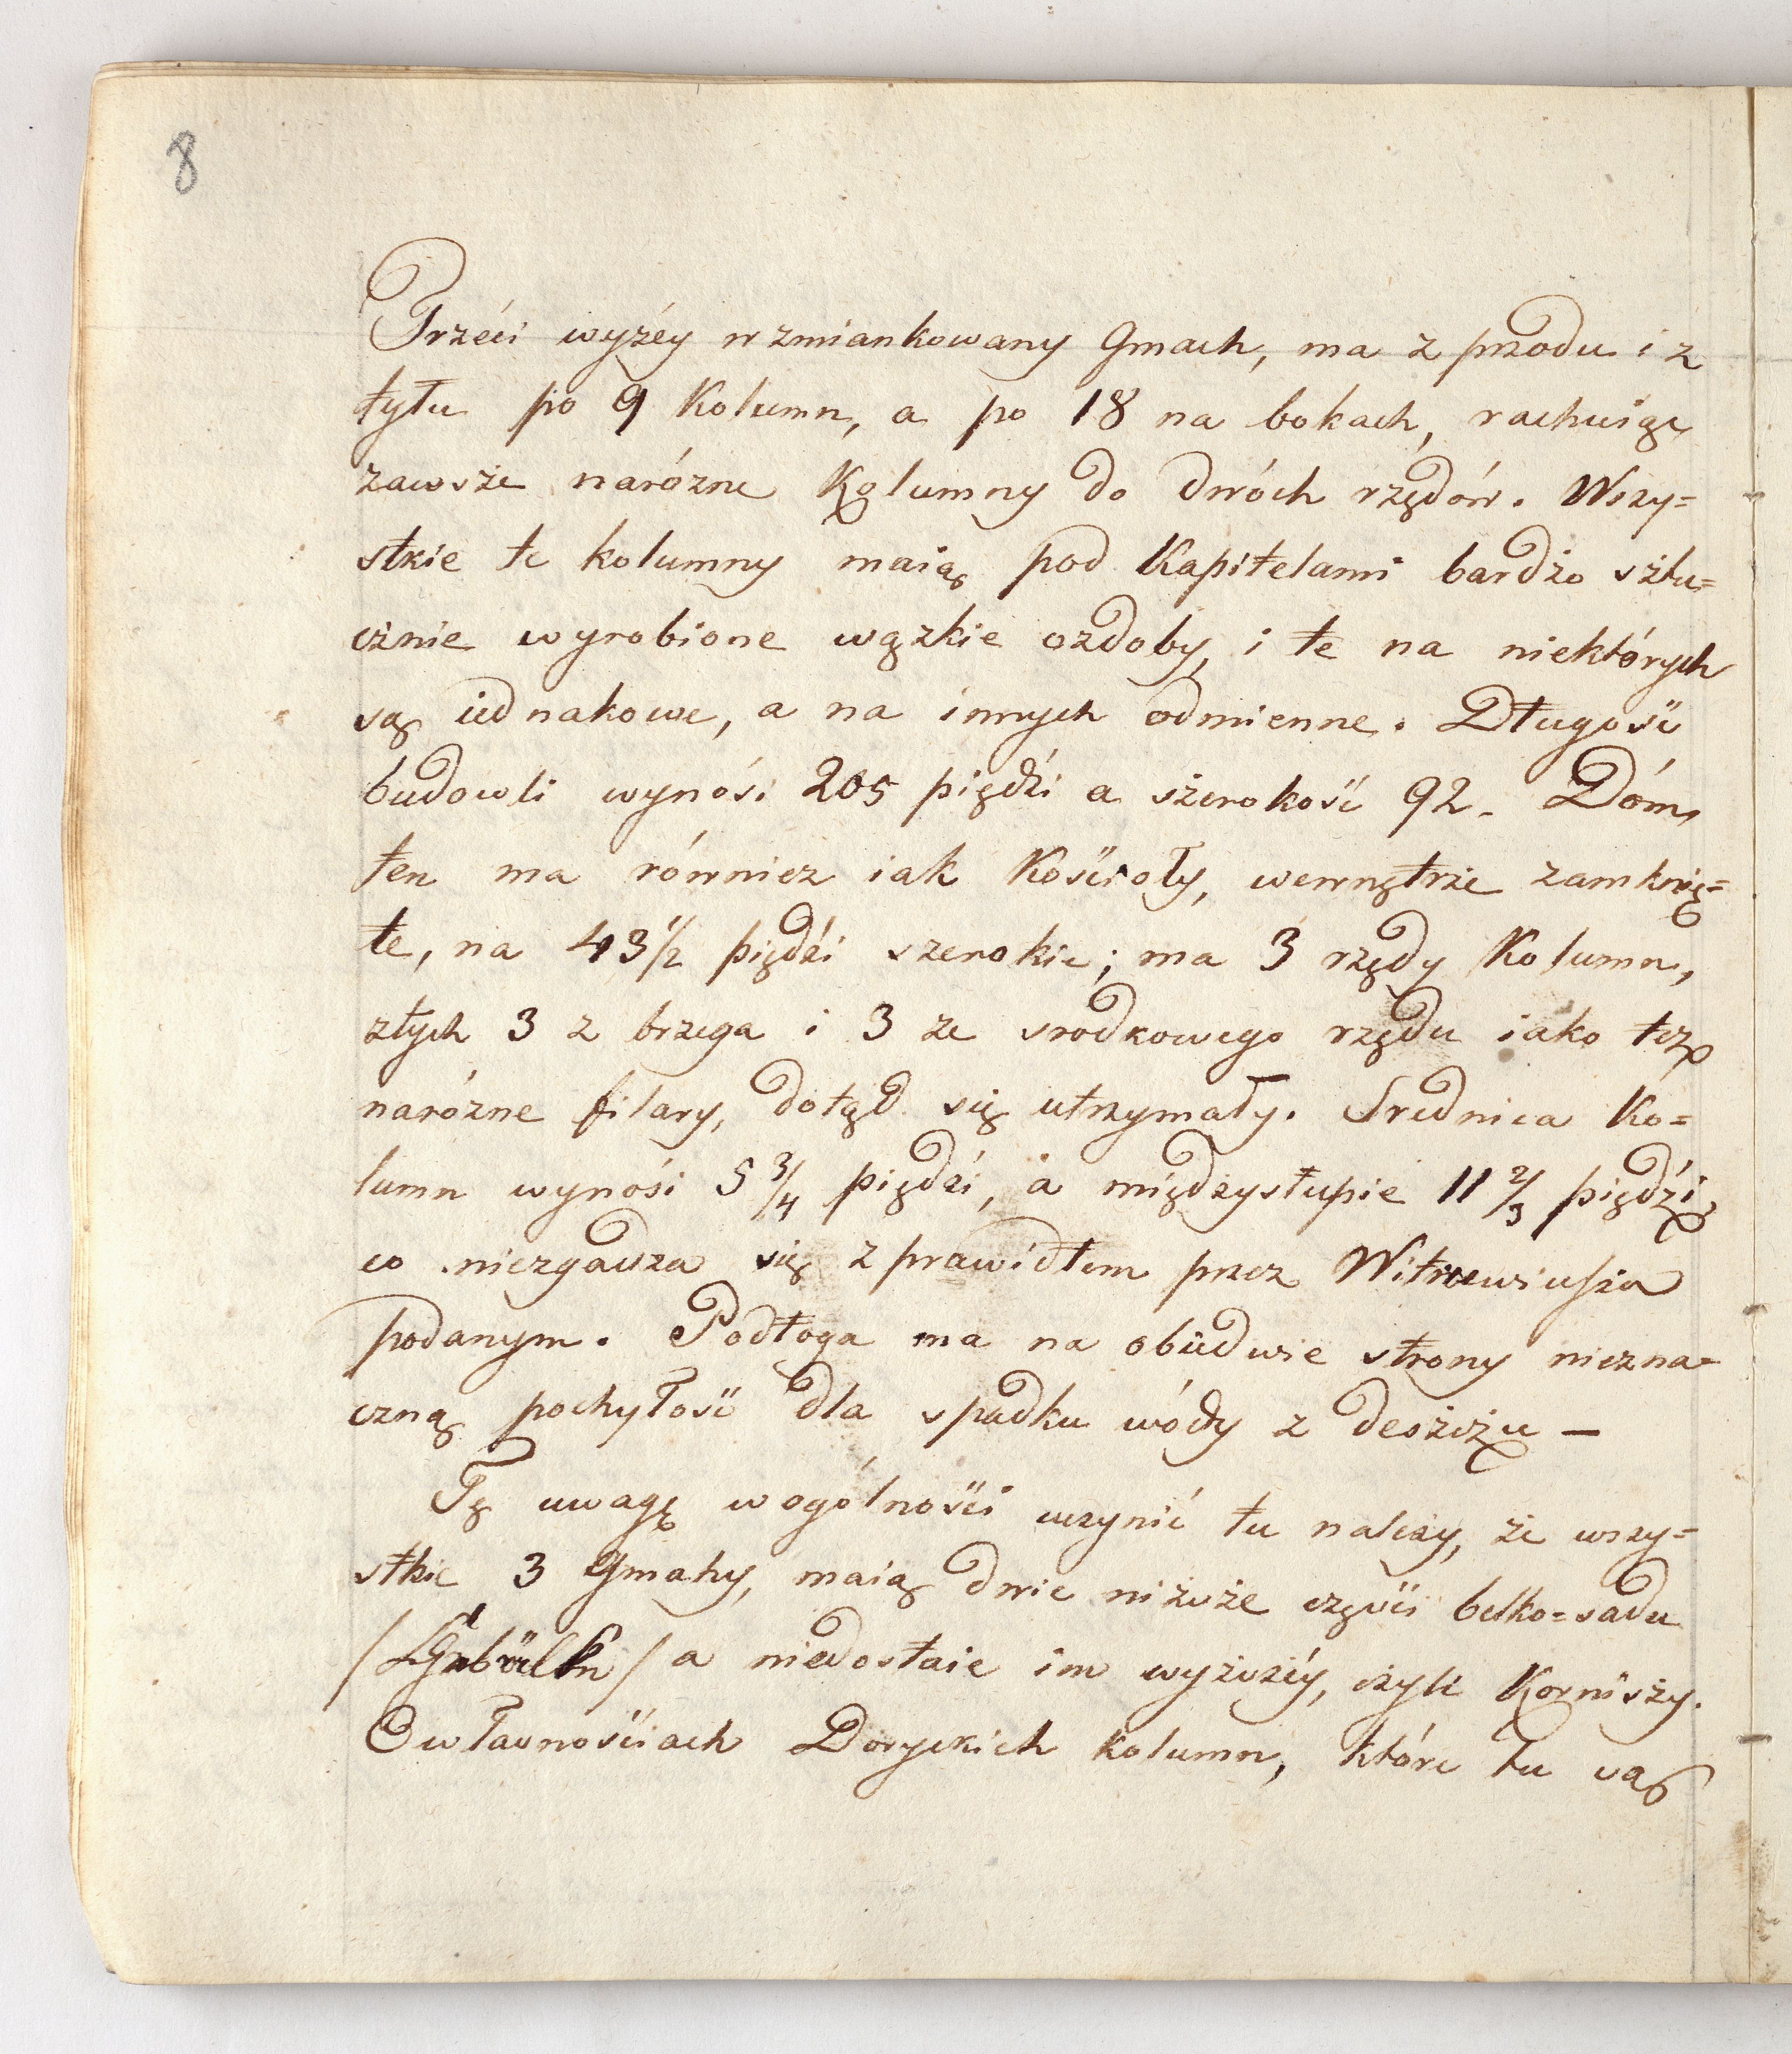 8
Trzéci wyżéy wzmiankowany Gmach, ma z przodu i z
tyłu po 9 Kolumn, a po 18 na bokach, rachuiąc
zawsże narózne Kolumny do dwóch rzędów. Wszy=
stkie te kolumny maią pod Kapitelami bardżo sżtu=
cżnie wyrobione wązkie ozdoby, i te na niektórych
są iednakowe, a na innych odmienne. Długość
budowli wynośi 205 piędźi a sżerokość 92. Dóm
ten ma równiez iak Kościoły, wewnętrże zamknię=
te, na 43 1/2 piędźi szerokie; ma 3 rzędy Kolumn,
ztych 3 z brzega i 3 ze srodkowego rzędu iako też
narózne filary, dotąd się utrzymały. Srednica Ko=
lumn wynośi 5 3/4 piędźi, a międzysłupie 11 2/3 piędźi,
co niezgadza się z prawidłem przez Witruwiusża
podanym. Podłoga ma na obiedwie strony niezna=
czną pochyłość dla spadku wódy z deszczu —
Tę uwagę wogólnośći uczynić tu należy, że wszy=
stkie 3 Gmahy, maią dwie niższe części belko=sadu
/Gebälke/ a niedostaie im wyższéy, czyli Kornisży.
O własnościach Doryckich kolumn, które tu są